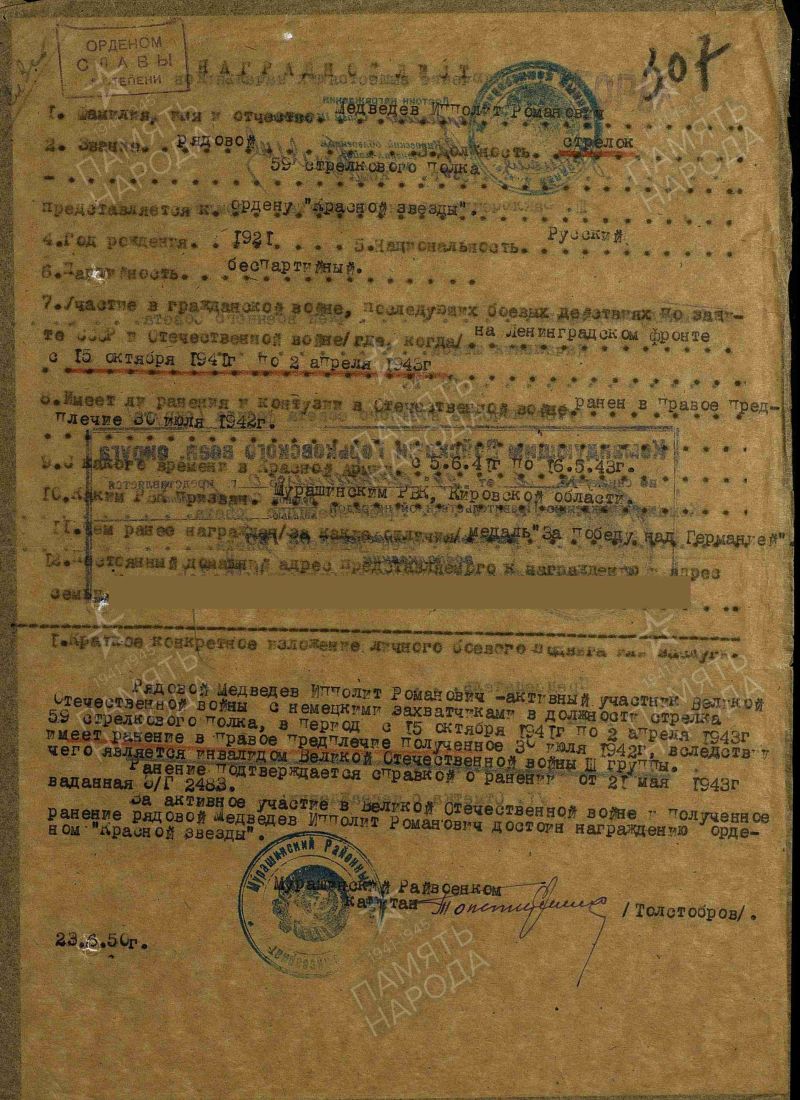 ОРДЕНОМ
СЛАВЫ
СТЕПЕНИ
НАГРАДНОЙ ЛИСТ
307
1. Фамилия, имя и отчество. Медведев Ипполит Романович
2. Звание. рядовой 3. Должность. стрелок
59 стрелкового полка
представляется к. ордену "Красной звезды".
4. Год рождения. 1921. 5. Национальность. Русский
6. Партийность. беспартийный.
7. Участие в гражданской войне, последующих боевых действиях по защи-
те СССР и Отечественной войне/где, когда/ на Ленинградском фронте
с 15 октября 1941г по 2 апреля 1943г
8. Имеет ли ранения и контузии в Отечественной войне. ранен в правое пред-
плечие 30 июля 1942г.
9. С какого времени в Красной Армии. с 5.6.41г по 16.5.43г.
10. Каким РВК призван. Мурашинским РВК, Кировской области.
11. Чем ранее награжден/за какие отличия/ медаль "За победу над Германией"
12. Постоянный домашний адрес представляемого к награждению и адрес
семьи.
1. Краткое конкретное изложение личного боевого подвига или заслуги.
Рядовой Медведев Ипполит Романович -активный участник Великой
Отечественной войны с немецкими захватчиками в должности стрелка
59 стрелкового полка, в период с 15 октября 1941г по 2 апреля 1943г
имеет ранение в правое предплечие полученное 30 июля 1942г, вследстви
чего является инвалидом Великой Отечественной войны III группы.
Ранение подтверждается справкой о ранении от 21 мая 1943г
ваданная Э/Г 2483.
За активное участие в Великой Отечественной войне и полученное
ранение рядовой Медведев Ипполит Романович достоин награждению орде-
ном "Красной звезды".
Мурашинский Районный
Мурашинский Райвоенком
Капитан /Толстобров/.
23.6.50г.
ПАМЯТЬ
НАРОДА